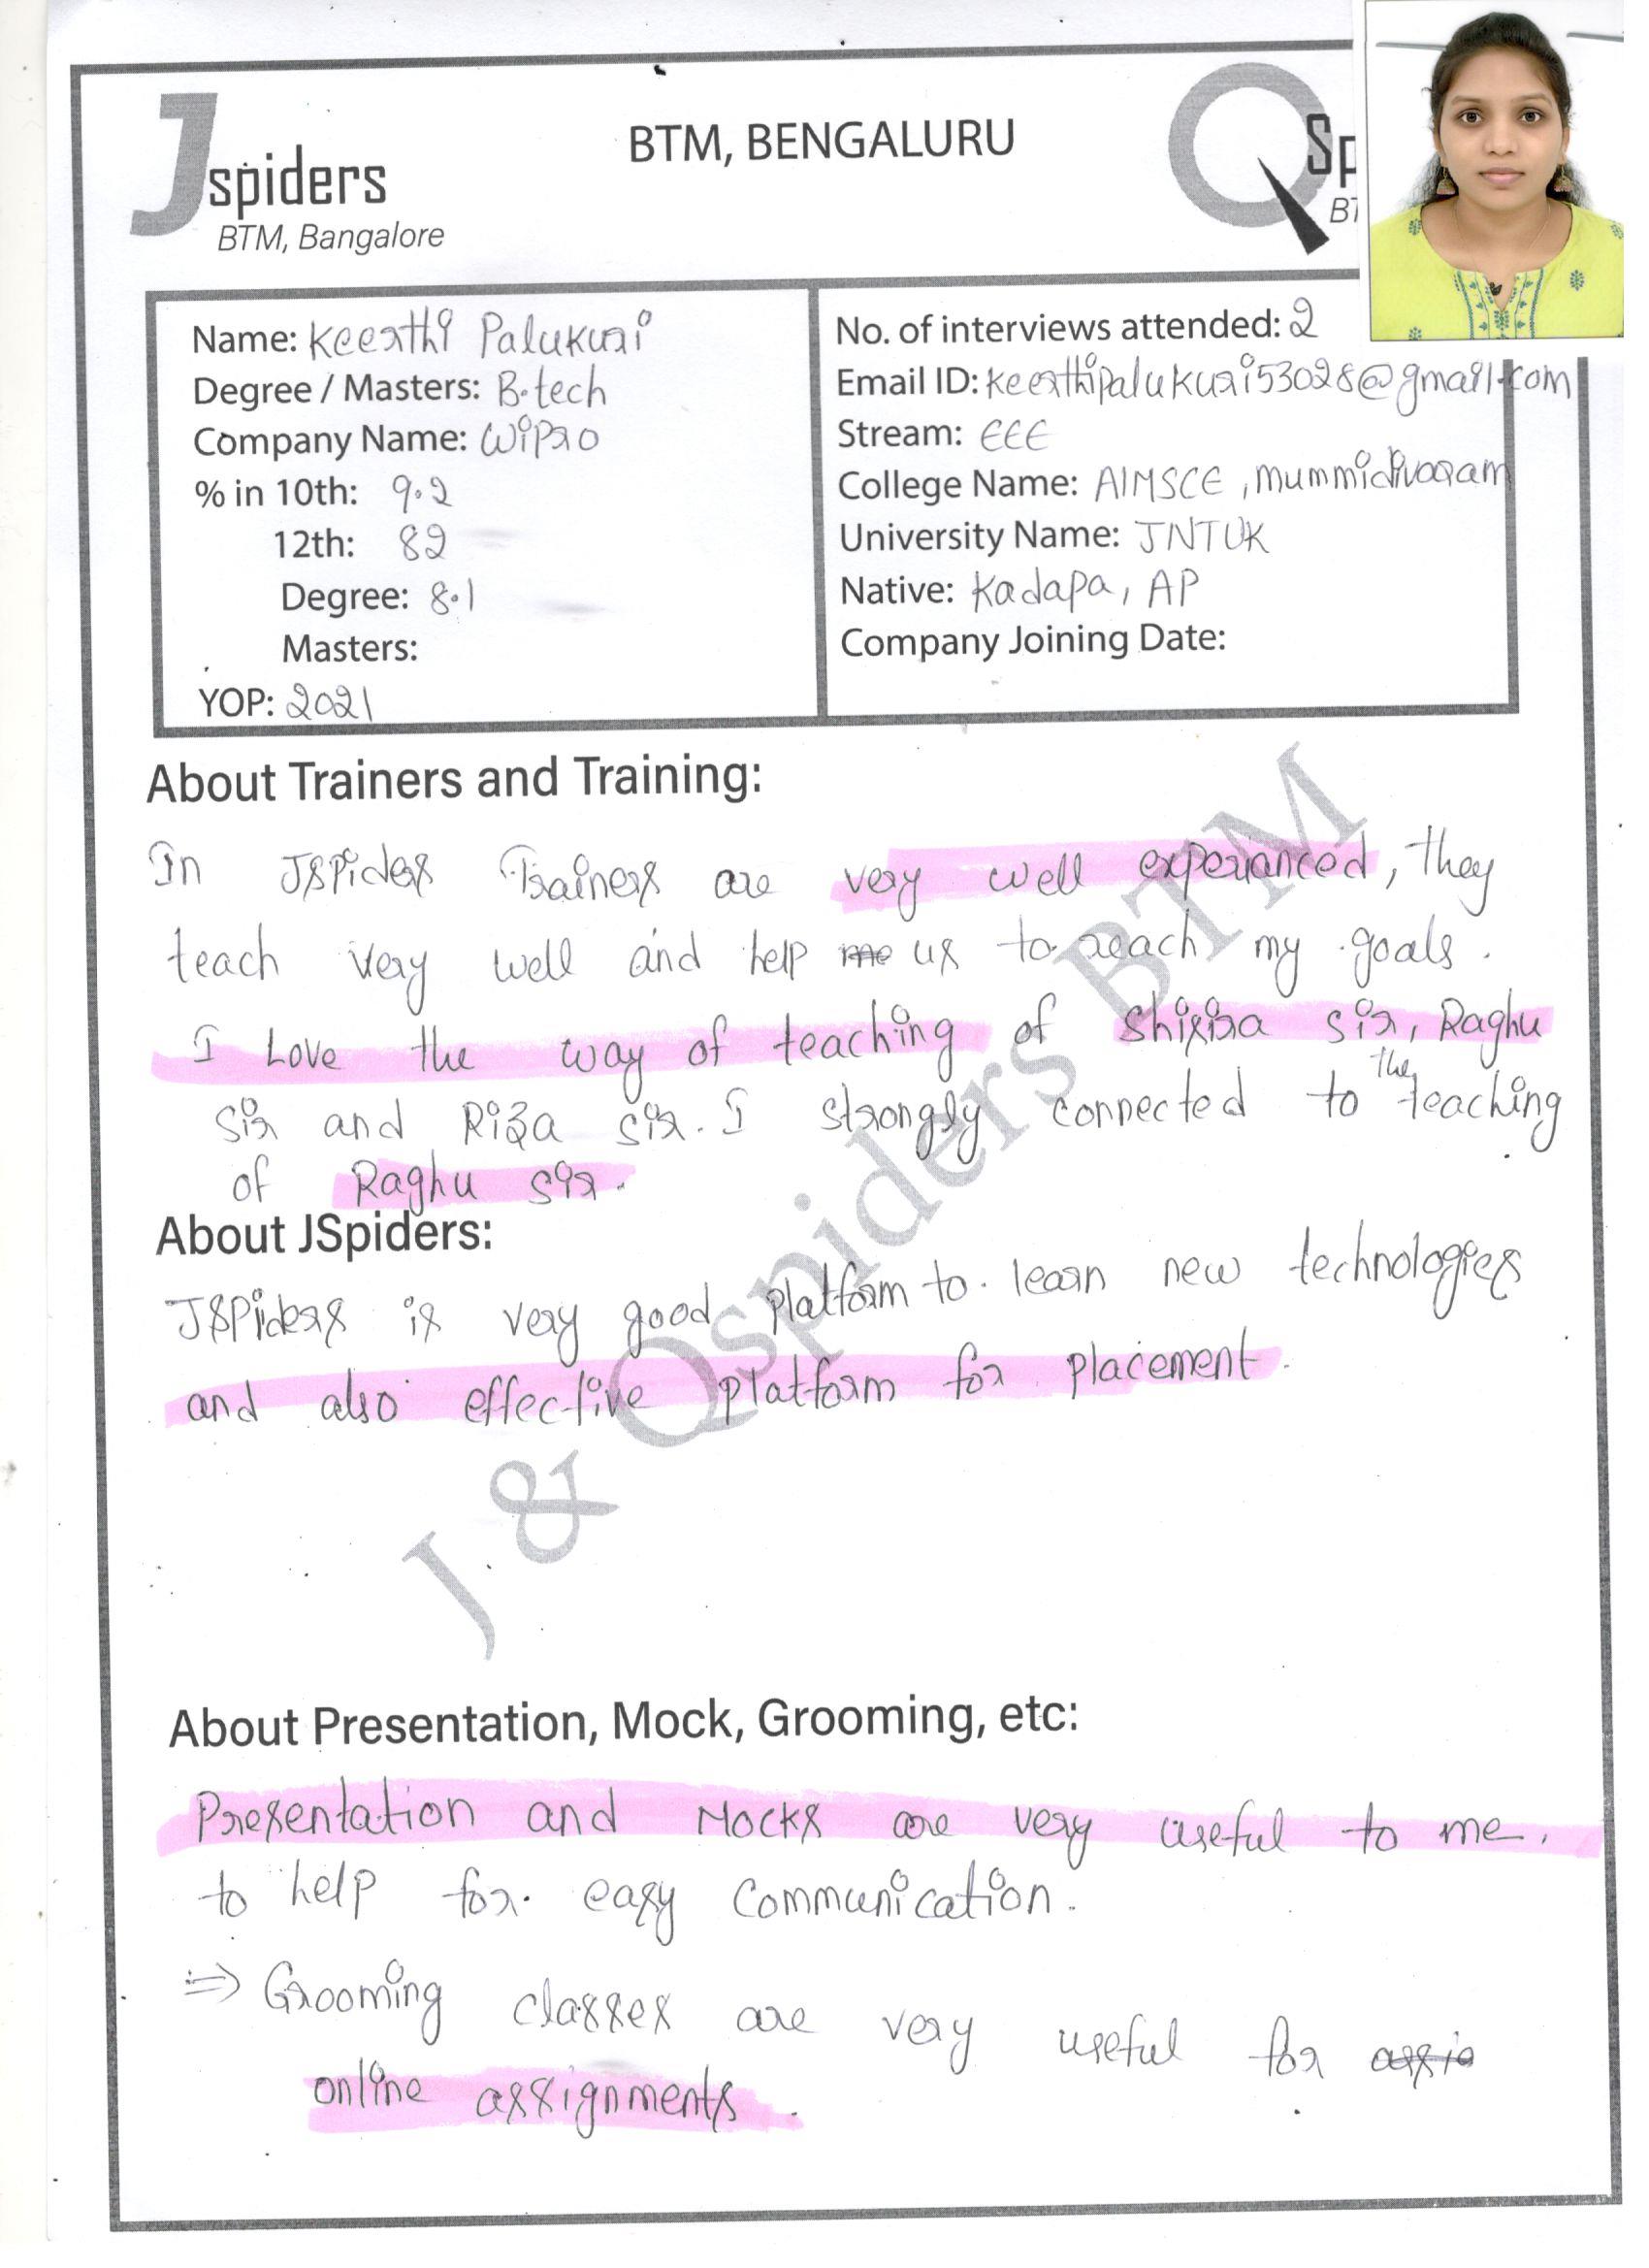 Jspiders
BTM, Bangalore
BTM, BENGALURU
Name: Keerthi Palukuri
Degree / Masters: B.tech
Company Name: Wipro
% in 10th: 9.2
12th: 82
Degree: 8.1
Masters:
YOP: 2021
No. of interviews attended: 2
Email ID: keerthipalukuri53028@gmail.com
Stream: EEE
College Name: AIMSCE, mummidivaram
University Name: JNTUK
Native: Kadapa, AP
Company Joining Date:
About Trainers and Training:
In JSPiders Trainers are very well experianced, they
teach very well and help me us to reach my goals.
I Love the way of teaching of sir, Raghu
sir and Riza sir. I strongly connected to the teaching
of Raghu sir.
About JSpiders:
JSPiders is very good platform to learn new technologies
and also effective platform for placement.
About Presentation, Mock, Grooming, etc:
Presentation and Mocks are very useful to me.
to help for easy communication.
⇒ Grooming classes are very useful for
online assignments.
J & Qspiders BTM